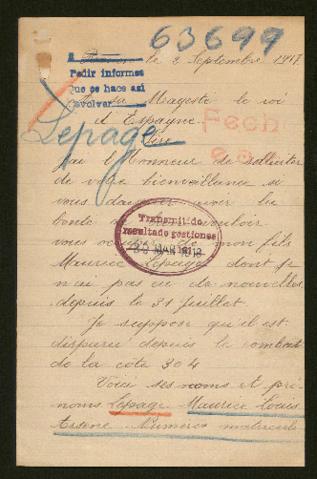 63699
le 2 Septembre 1917
Pedir informes
que se hace así
devolver
Sa Magesté le roi
d'Espagne
Lepage
Fech
Sire
J'ai l'honneur de solliciter
de votre bienveillance si
vous avoir la
bonté vouloir
Transmitido
resultado gestiones
vous mon fils
Maurice Lepage dont je
n'ai pas eu de nouvelles
depuis le 31 juillet.
Je suppose qu'il est
disparu depuis le combat
de la côte 304
Voici ses noms et pré
noms Lepage Maurice Louis
Arsene Numeros matricule